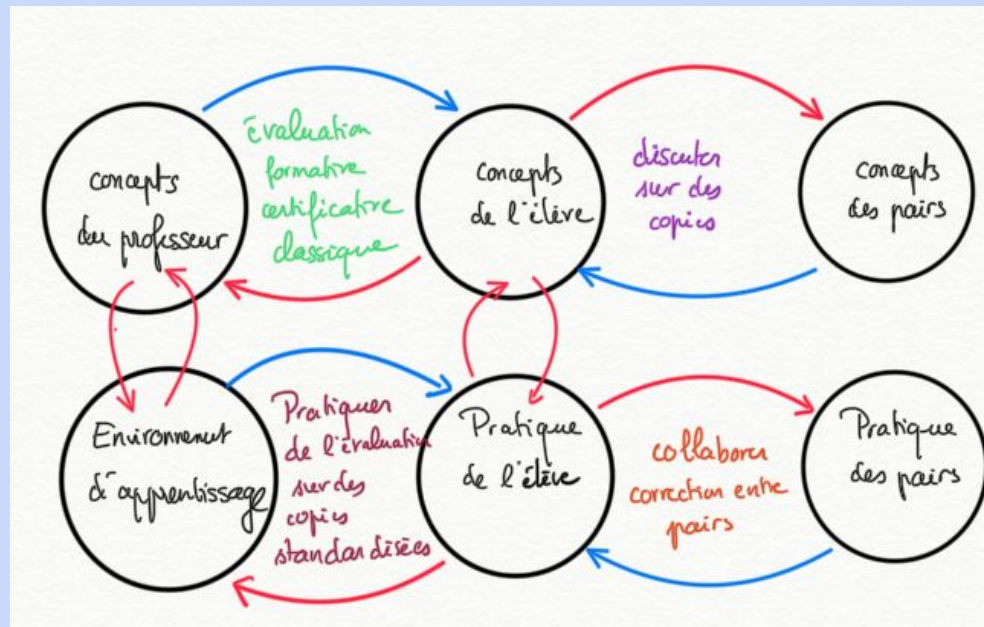 concepts
du professeur
évaluation
formative
certificative
classique
concepts
de l'élève
discuter
sur des
copies
concepts
des pairs
Environnement
d'apprentissage
Pratiquer
de l'évaluation
sur des
copies
standardisées
Pratique
de l'élève
collaborer
correction entre
pairs
Pratique
des pairs